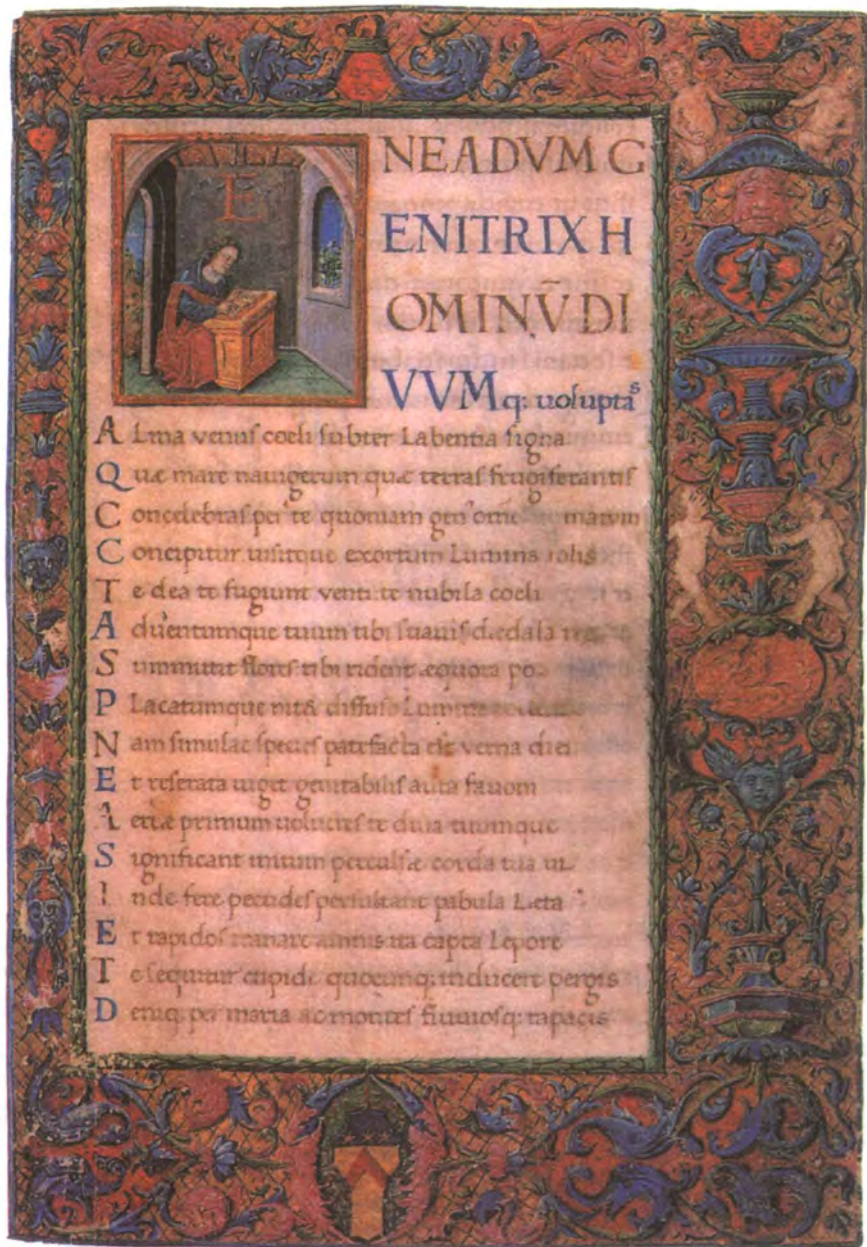 E
NEADVM G
ENITRIX H
OMINṼ DI
VVMq: uolupta^s
Alma venus coeli subter Labentia signa
Quæ mare nauigerum quæ terras frugiferantis
Concelebras per te quoniam gen
Concipitur uisitque exortum Lumina solis
Te dea te fugiunt venti te nubila coeli
Aduentumque tuum tibi suauis dædala
Summittit flores tibi rident æquora po
PLacatumque nit& diffuso Lumine
Nam simulac species patefacta est verna diei
Et reserata uiget genitabilis aura fauoni
Aeriæ primum uolucres te diua tuumque
Significant initum perculsæ corda tua ui
Inde fere pecudes persultant pabula Læta
Et rapidos tranare amnis ita capta Lepore
Te sequitur cupide quocunq: inducere pergis
Deniq: per maria ac montes fluuiosq: rapacis